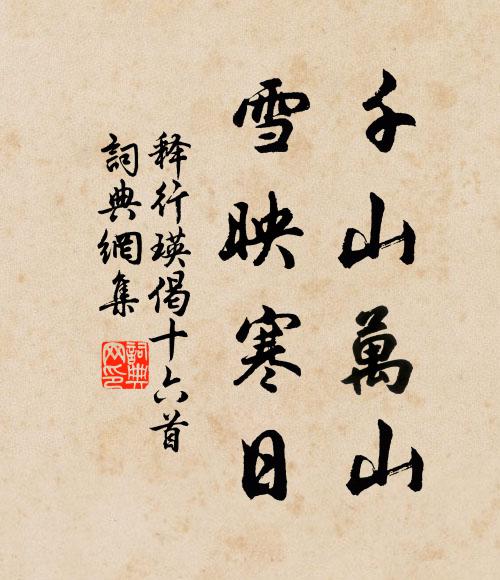 千山萬山
雪映寒日
释行瑛偈十六首
詞典網集
詞典
网印